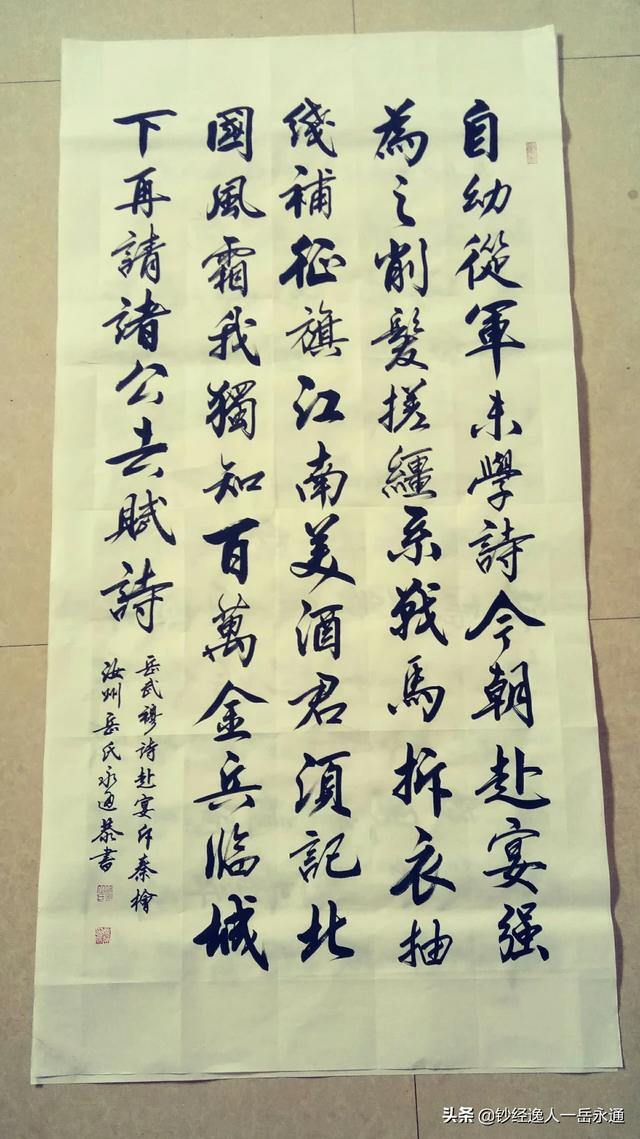 自幼從軍未學詩今朝赴宴强
為之削髮搓繮系戰馬拆衣抽
线補征旗江南美酒君須記北
國風霜我獨知百萬金兵临城
下再請諸公去賦詩
岳武穆詩赴宴斥秦檜
汝州岳氏永通恭書
头条 @钞经逸人一岳永通